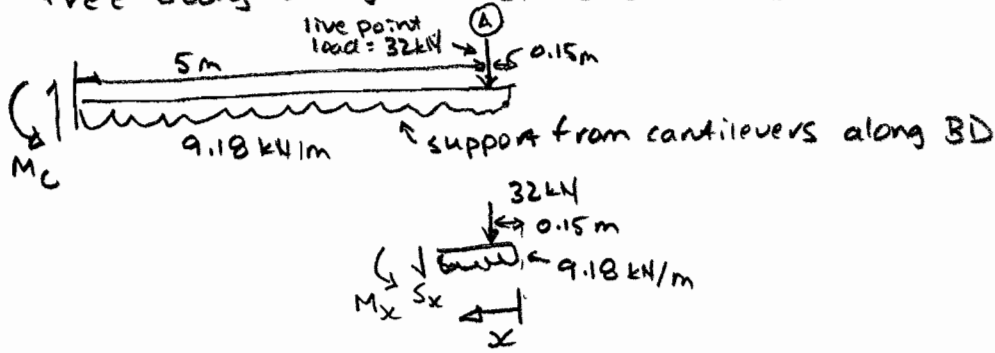 live point
load = 32kN
A
5m
0.15m
Mc
9.18 kN/m
support from cantilevers along BD
32kN
0.15m
Mx Sx
9.18 kN/m
x